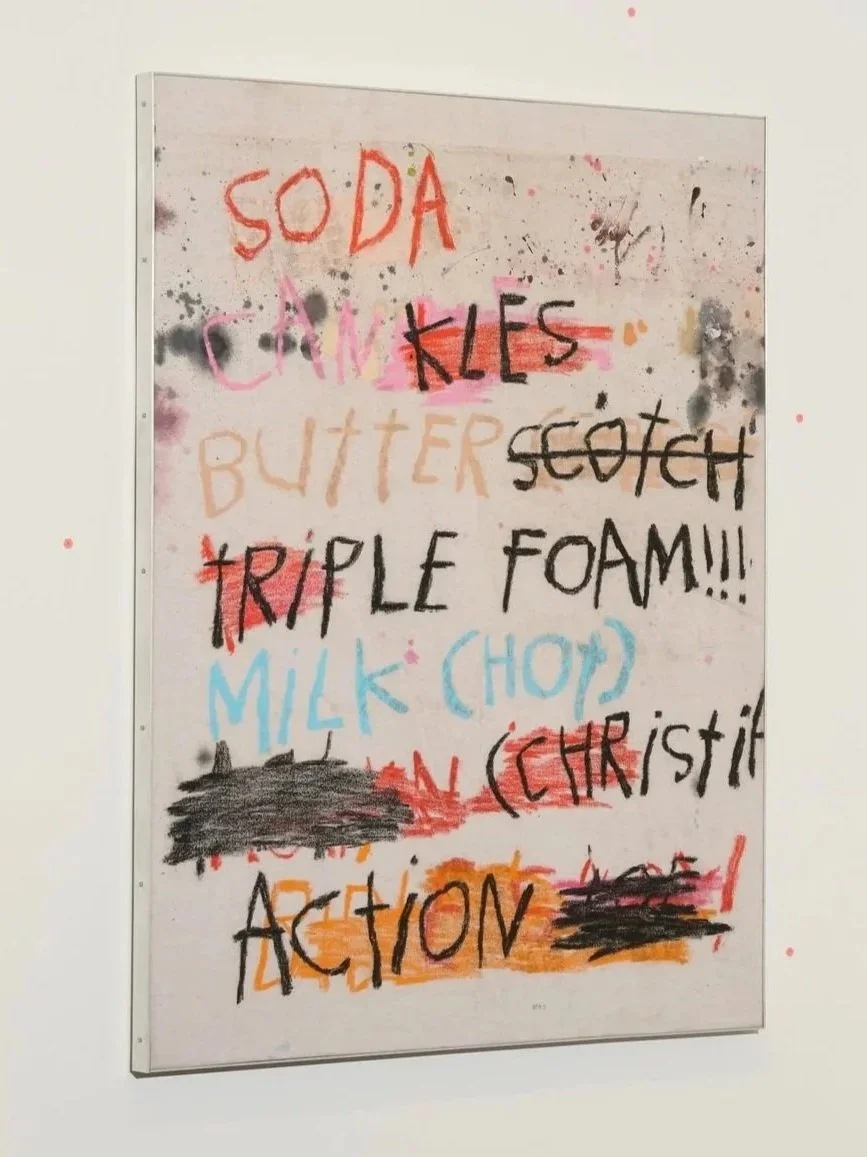 SODA
CANKLES
BUTTER SCOTCH
TRIPLE FOAM!!!
MiLK (HOt)
(CHRiSti
ACtiON